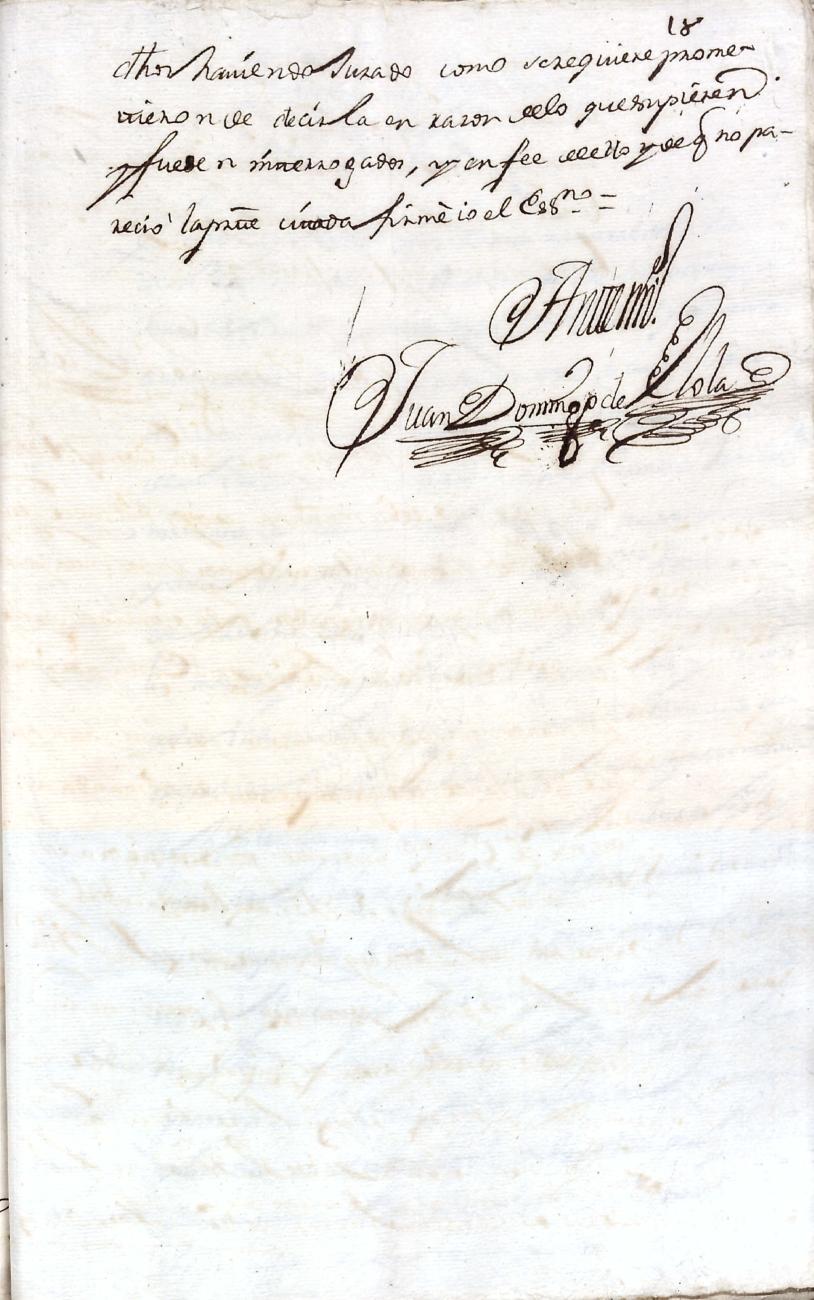 18
dhos haviendo Jurado como se requiere prome-
tieron de decir la en razon de lo que supieren
y fueren interrogados, y en fee de ello y de q̃ no pa-
recio la parte citada firmè io el Essno =
Ante mi
Juan Domingo de